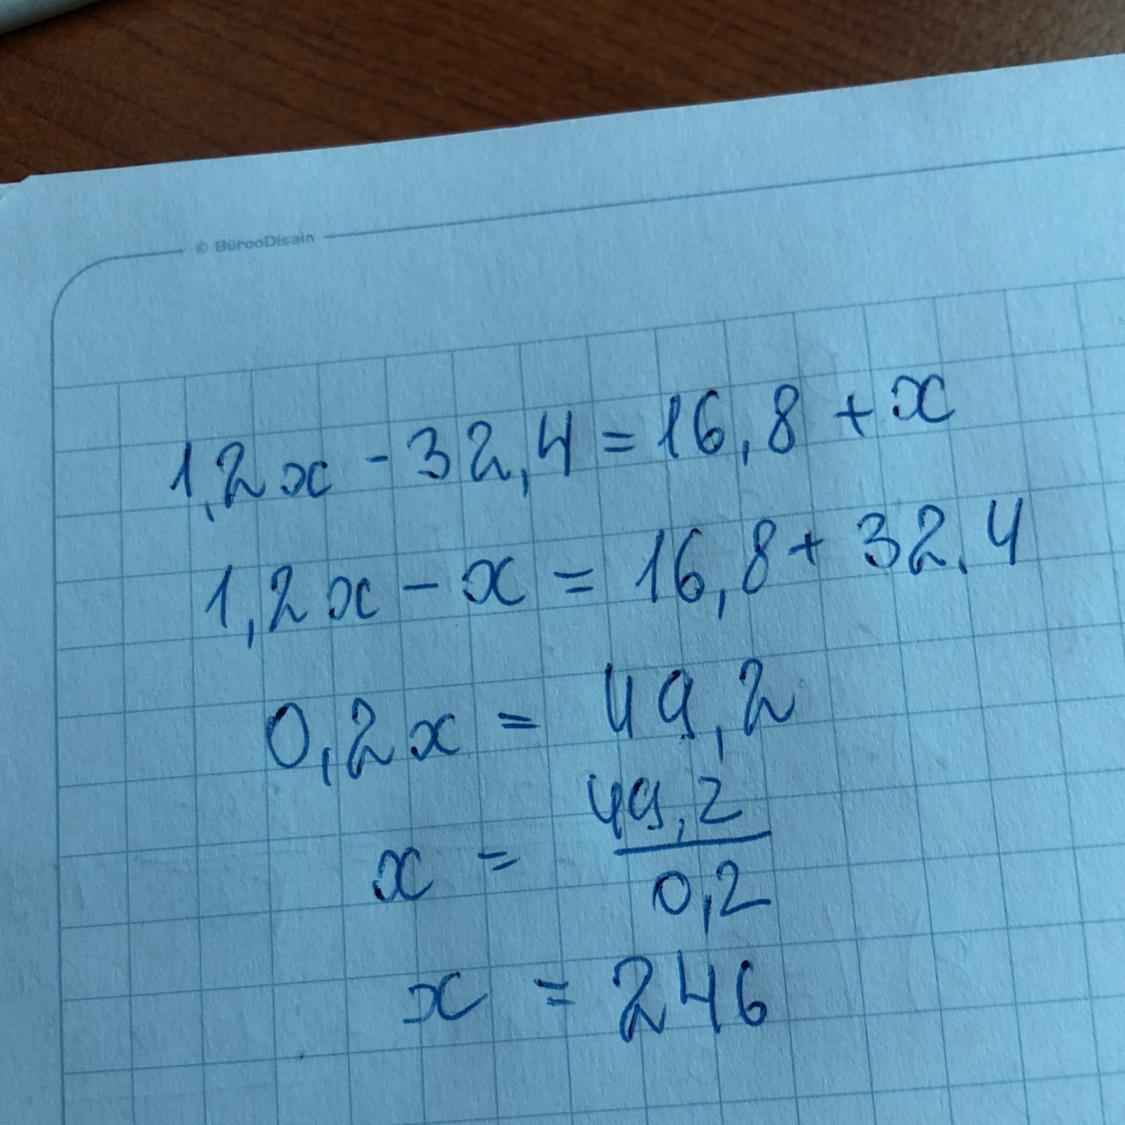 © BürooDisain
1,2x - 32,4 = 16,8 + x
1,2x - x = 16,8 + 32,4
0,2x = 49,2
x = 49,2 / 0,2
x = 246